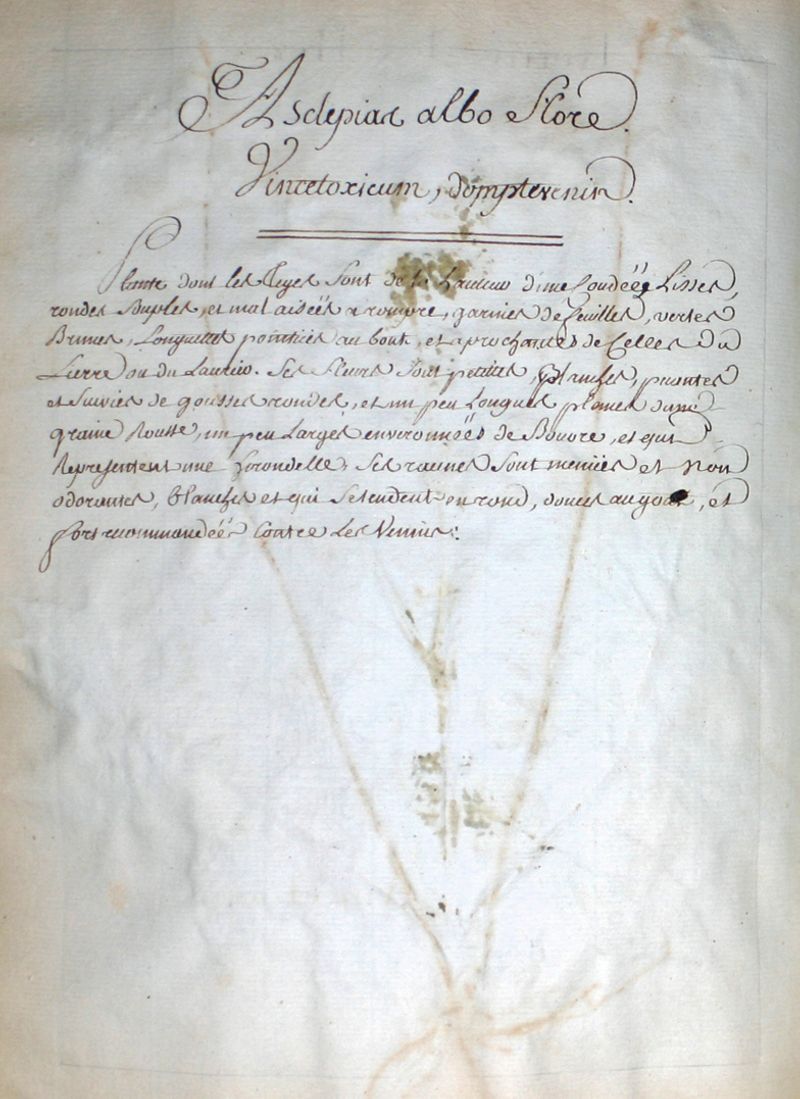 Asclepias albo Flore.
Vincetoxicum, dompte venin.
Plante dont les Tiges sont de la Hauteur d'une Coudéé, Lisses,
rondes Suples, et mal aiséés a rompre, garnies de feuilles, vertes
Brunes, Longuettes pointües au bout, et aprochantes de Celles du
Lierre ou du Laurier. Ses fleurs sont petites, blanches, puantes
et Suivies de gousses rondes, et un peu Longues pleines d'une
graine Rousse, un peu Larges environnéés de Bourre, et qui
Representent une hirondelle, Ses racines sont menües et Non
odorantes, blanches et qui Setendent en rond, douces au gout, et
fort recommandéés Contre les Venins: